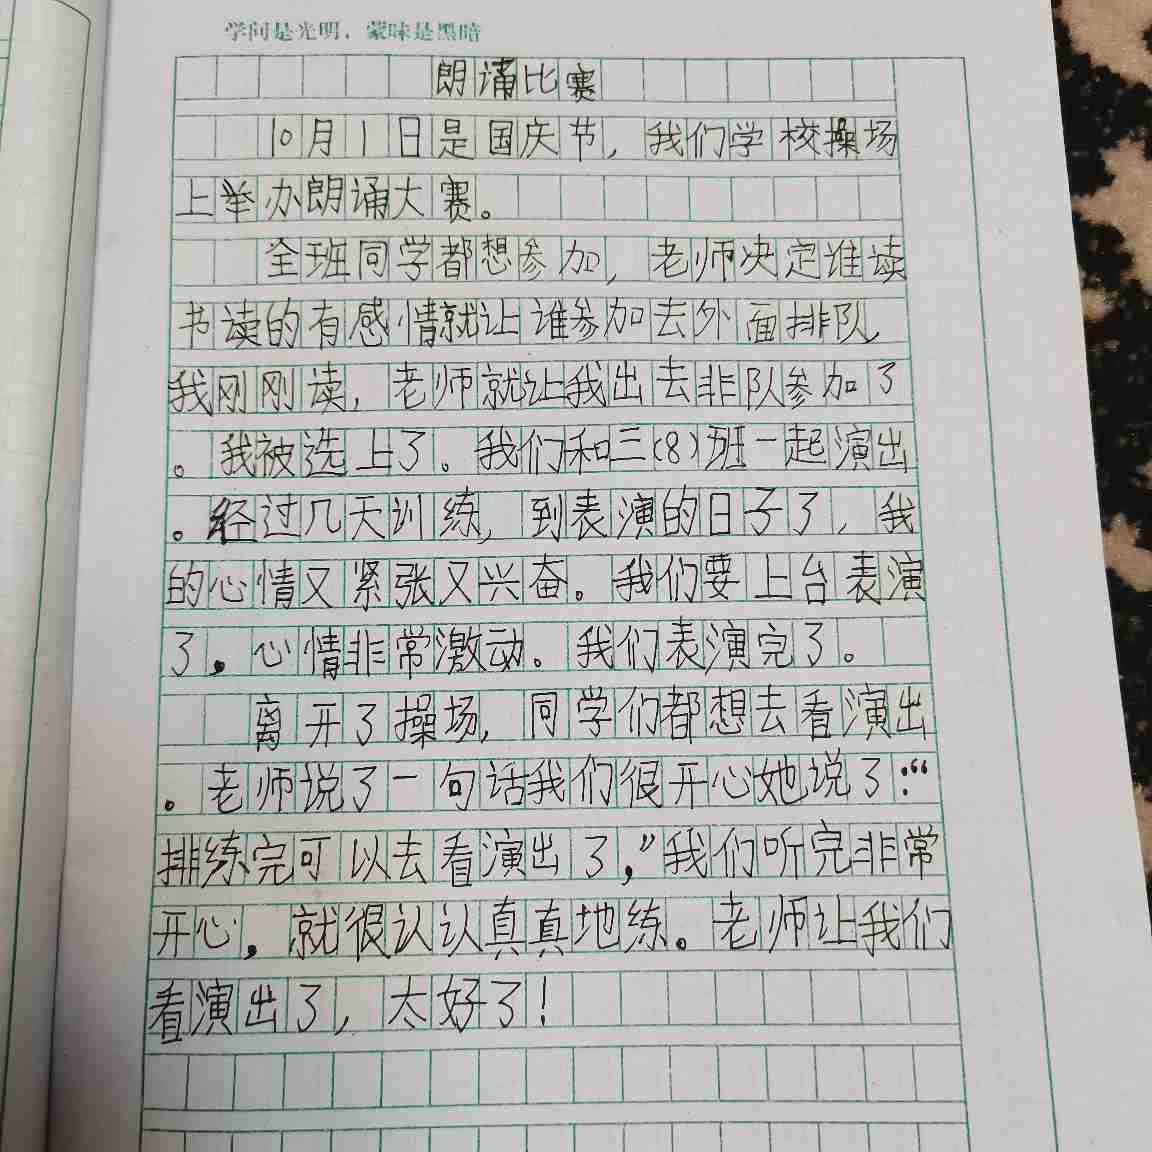 学问是光明，蒙昧是黑暗
朗诵比赛
10月1日是国庆节，我们学校操场
上举办朗诵大赛。
全班同学都想参加，老师决定谁读
书读的有感情就让谁参加去外面排队，
我刚刚读，老师就让我出去非队参加了
。我被选上了。我们和三(8)班一起演出
。经过几天训练，到表演的日子了，我
的心情又紧张又兴奋。我们要上台表演
了，心情非常激动。我们表演完了。
离开了操场，同学们都想去看演出
。老师说了一句话我们很开心她说了：“
排练完可以去看演出了，”我们听完非常
开心，就很认认真真地练。老师让我们
看演出了，太好了！